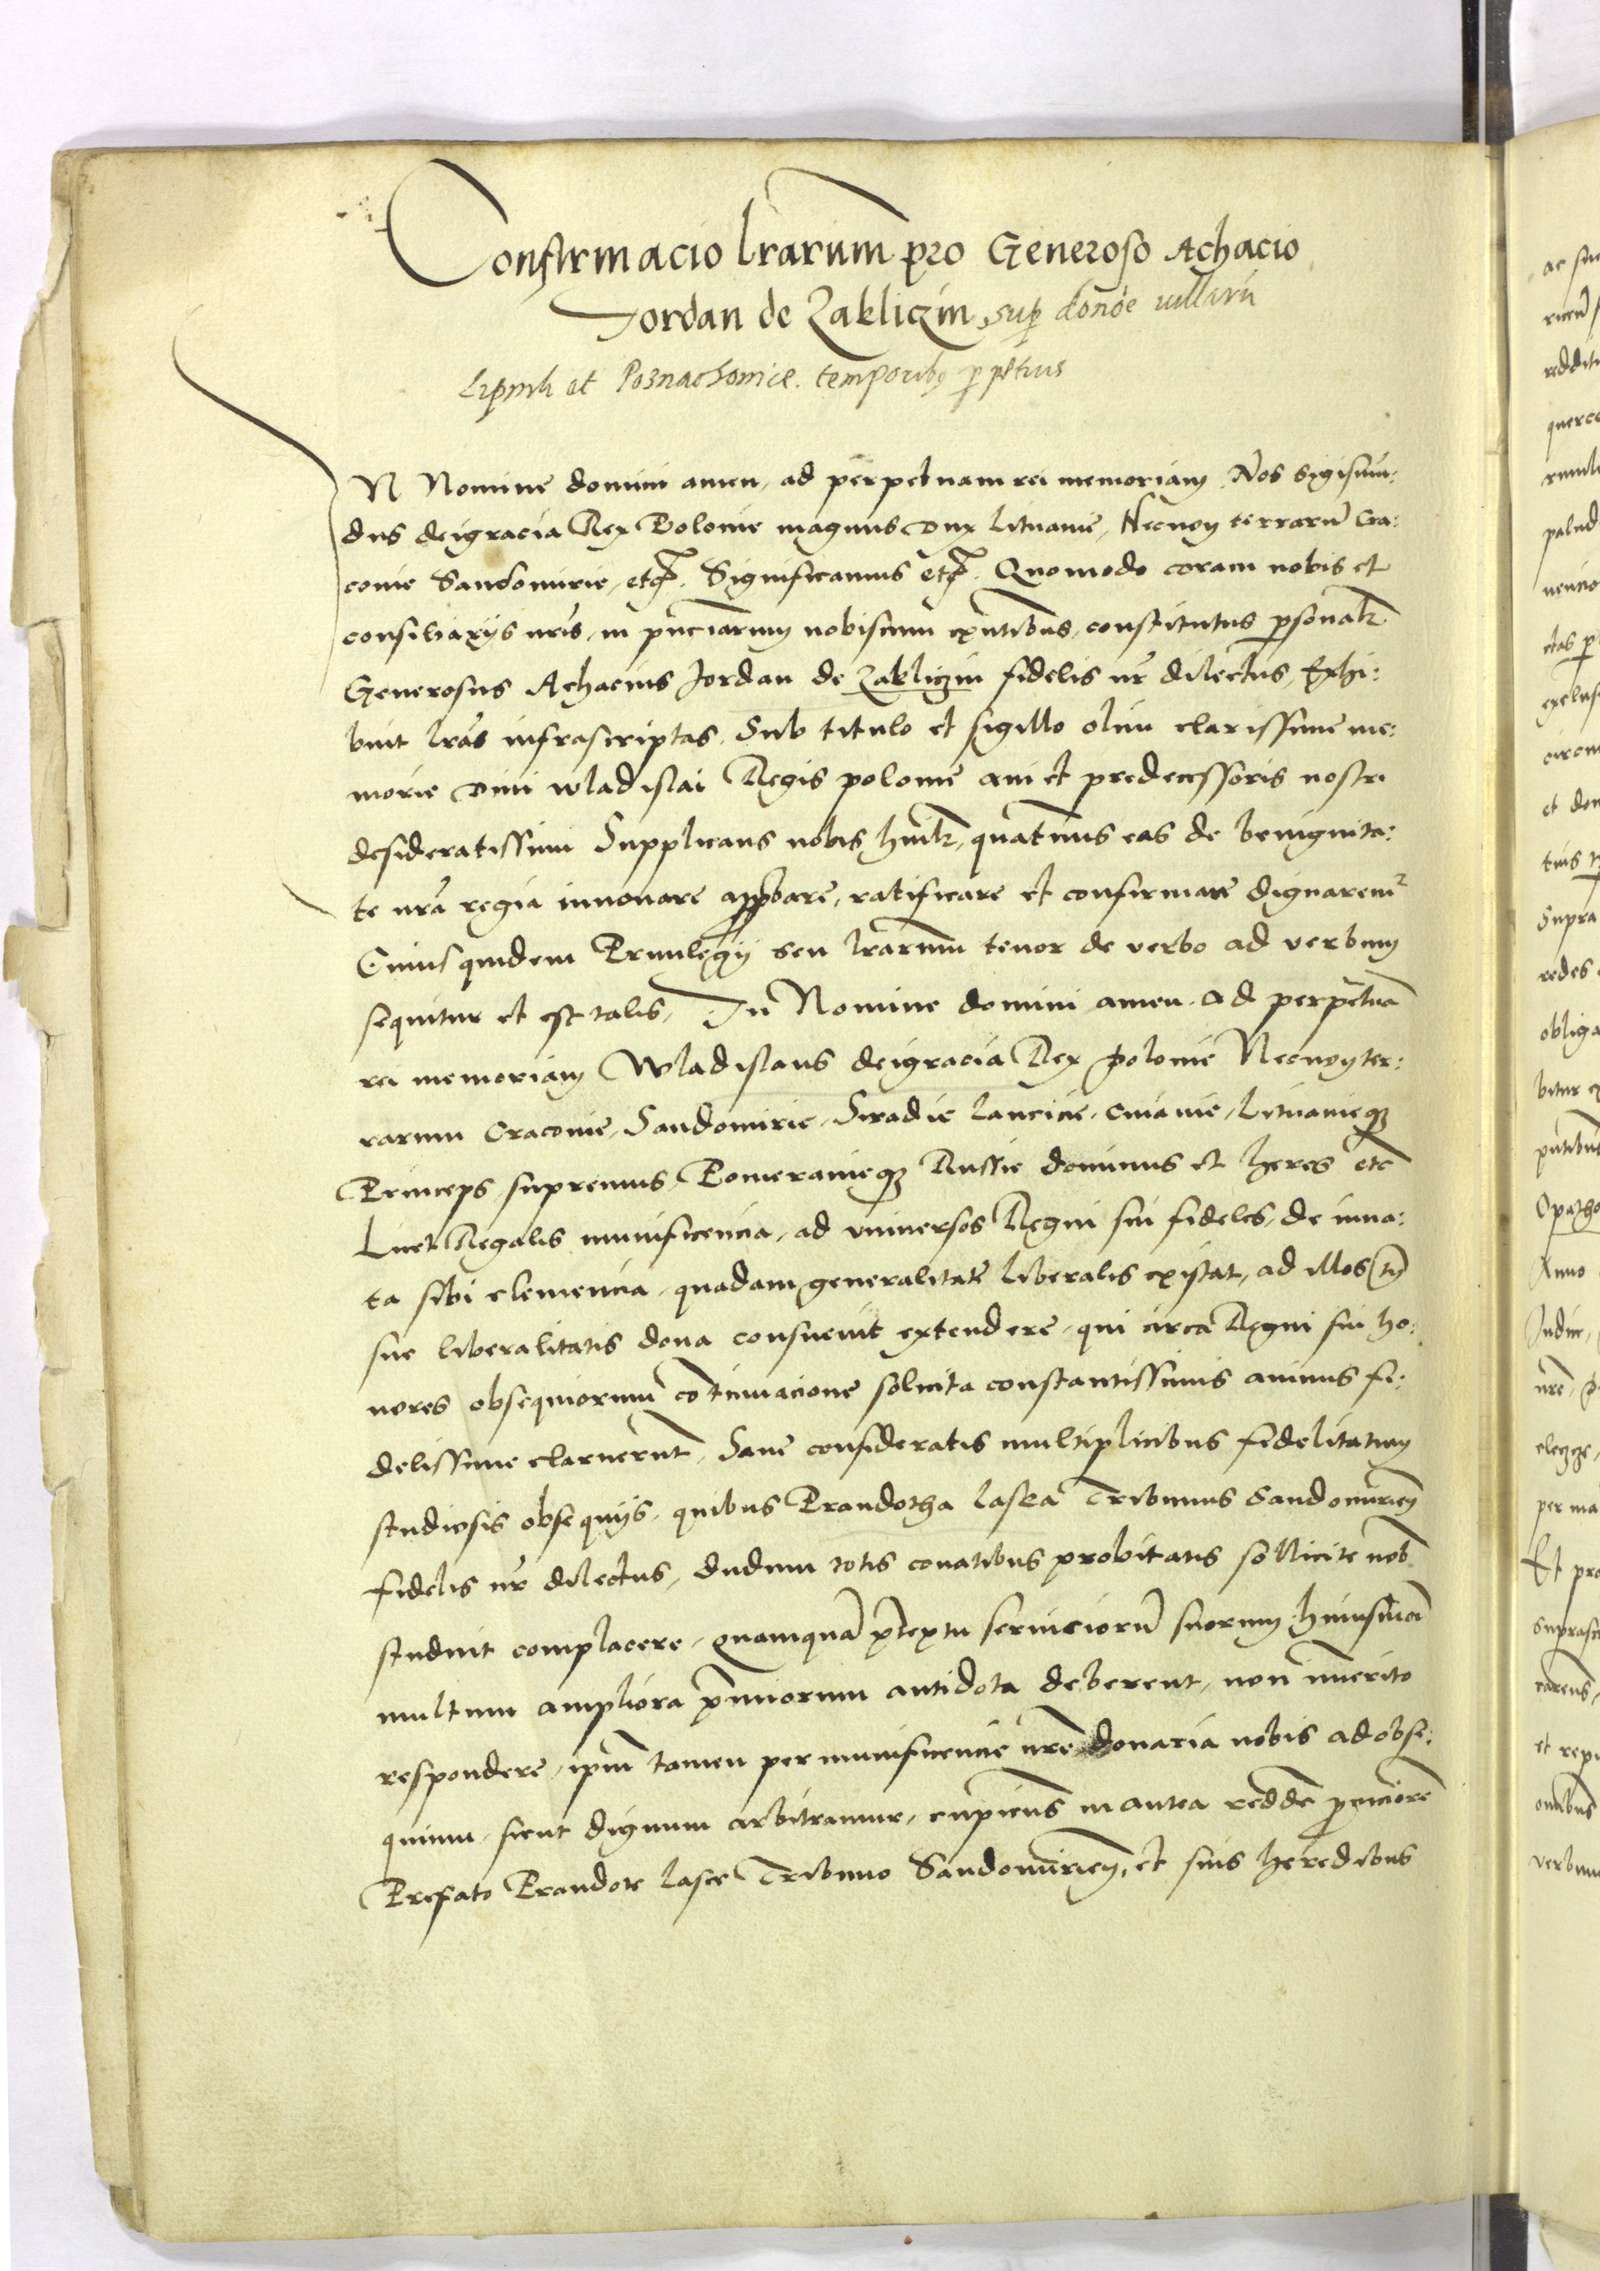 Confirmacio lrarum pro Generoso Achacio
Jordan de Zakliczin sup donoe villaru
Lipnik et Poznachowice temporibq ppetuis
IN Nomine domini amen, ad perpetuam rei memoriam, Nos Sigismun:
dus deigracia Rex Polonie magnus Dux Lituanie, Necnon terrarum Cra:
couie Sandomirie, etc. Significamus etc. Quomodo coram nobis et
consiliariis nris, in pnciarum nobiscum exntibus, constitutus psonalr
Generosus Achacius Jordan de Zakliczin fidelis nr dilectus, Exhi:
buit lras infrascriptas. Sub titulo et sigillo olim clarissime me:
morie Diui Wladislai Regis polonie aui et predecessoris nostri
desideratissimi Supplicans nobis humilr, quatinus eas de benignita:
te nra regia innouare approbare, ratificare et confirmare dignarem
Cuiusquidem Priuilegij seu lrarum tenor de verbo ad verbum
sequitur et est talis. In Nomine domini amen. ad perpetua
rei memoriam Wladislaus deigracia Rex Polonie Necnon ter:
rarum Cracouie, Sandomirie, Siradie Lancicie, Cuiauie, Lituanieq
Princeps supremus, Pomeranieq Russie dominus et heres etc
Licet Regalis munificencia, ad vniuersos Regni sui fideles, de inna:
ta sibi clemencia quadam generalitate liberalis existat, ad illos tn
sue liberalitatis dona consueuit extendere, qui circa Regni sui ho:
nores obsequiorum cotinuacione solicita constantissimis animis fi:
delissime claruerunt, Sane consideratis multiplicibus fidelitatum
studiosis obsequijs, quibus Prandotha Lasca Tribunus Sandomirien
fidelis nr dilectus, dudum totis conatibus probitatis sollicite nob
studuit complacere, quamqua ptextu seruiciorum suorum huiusmoi
multum ampliora pmiorum antidota deberent, non inmerito
respondere, ipm tamen per munificencie nre donaria nobis ad obse:
quium, sicut dignum arbitramur, cupiens in antea redde pmciore
Prefato Prandote Lasce Tribuno Sandomirien, et suis heredibus